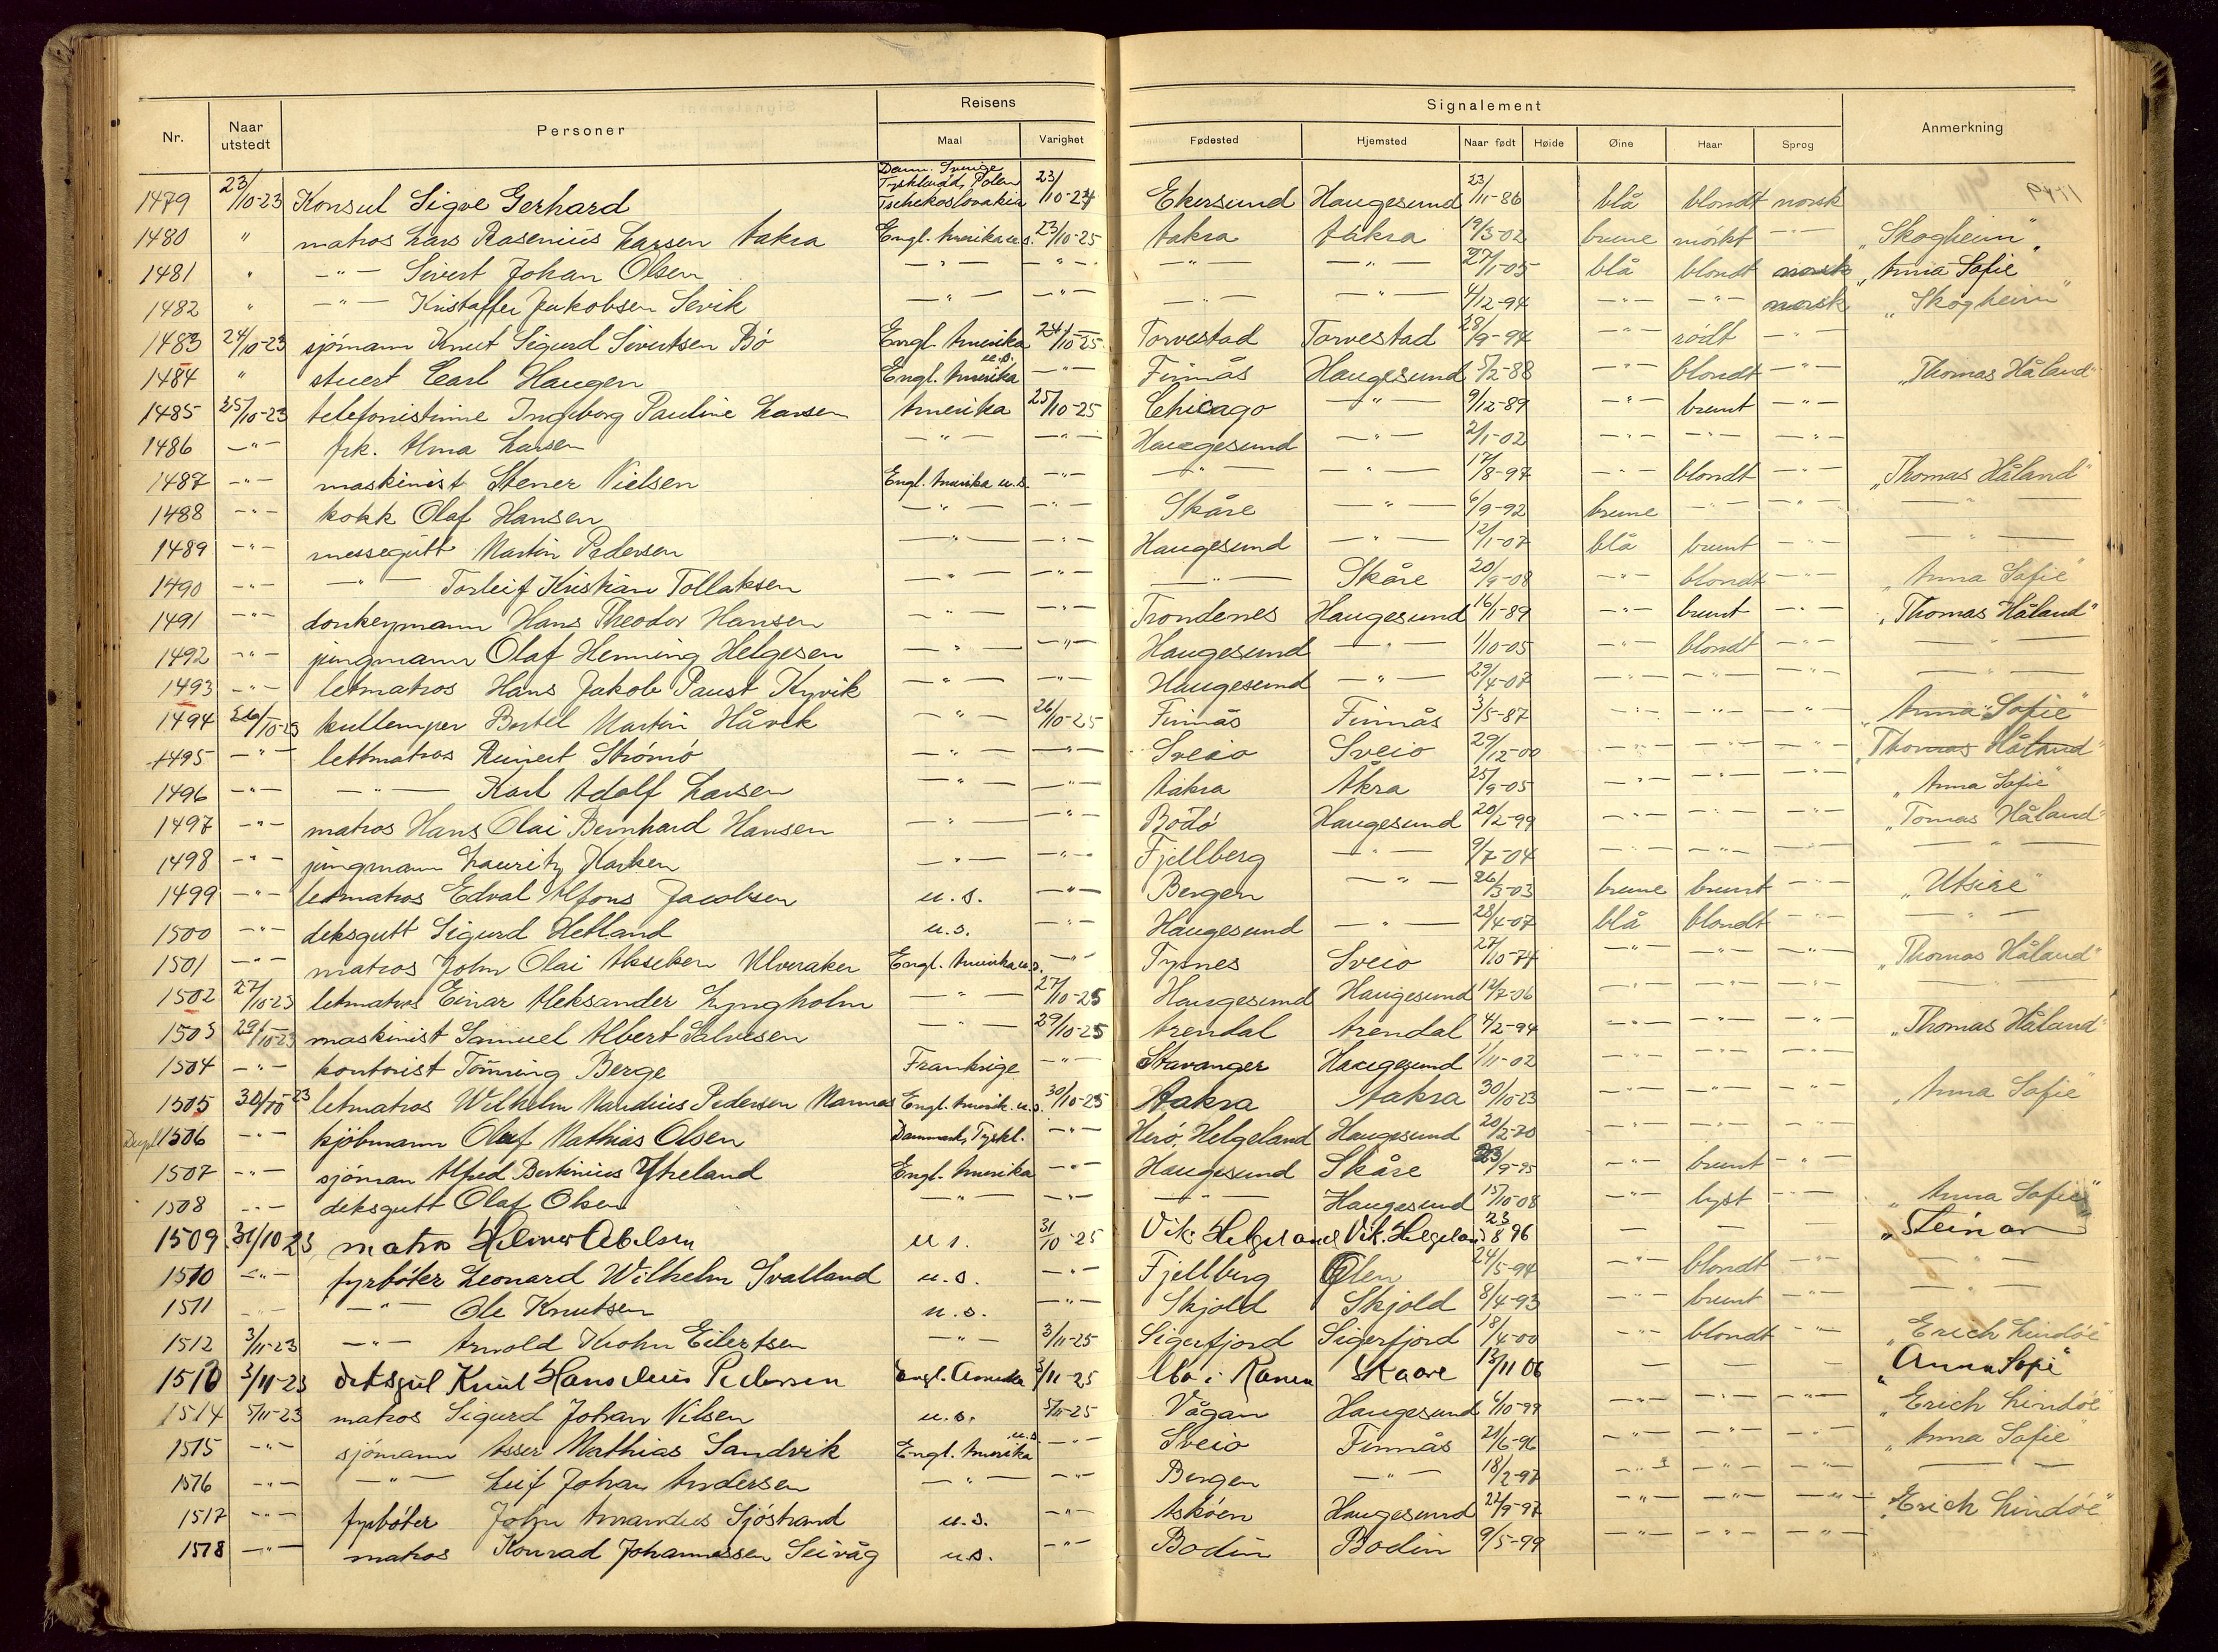 Nr. Naar utstedt Personer Reisens Maal Varighet Signalement Fødested Hjemsted Naar født Høide Øine Haar Sprog Anmerkning
1479 23/10-23 Konsul Sigve Gerhard Danm. Sverige Tyskland, Polen Tschekoslovakia 23/10-24 Ekersund Haugesund 23/11-86 blå blondt norsk
1480 " matros Lars Rasenius Larsen Aakra Engl. Amerika u.s. 23/10-25 Aakra Aakra 19/3-02 brune mörkt -"- "Skogheim"
1481 " -"- Sivert Johan Olsen -"- -"- -"- -"- 27/1-05 blå blondt norsk "Anna Sofie"
1482 " -"- Kristoffer Jakobsen Sevik -"- -"- -"- -"- 4/12-94 -"- -"- norsk "Skogheim"
1483 24/10-23 sjömann Knut Sigurd Sivertsen Bö Engl. Amerika u.s. 24/10-25 Torvestad Torvestad 28/9-94 -"- rödt -
1484 " stuert Carl Haugen Engl. Amerika -"- Finnås Haugesund 5/2-88 -"- blondt -"- "Thomas Håland"
1485 25/10-23 telefonistinne Ingeborg Pauline Larsen Amerika 25/10-25 Chicago -"- 9/12-89 -"- brunt -"-
1486 -"- frk. Alma Larsen -"- -"- Haugesund -"- 2/1-02 -"- -"- -"-
1487 -"- maskinist Stener Nielsen Engl. Amerika u.s. -"- -"- -"- 17/8-97 -"- blondt -"- "Thomas Håland"
1488 -"- kokk Olaf Hansen -"- -"- Skåre -"- 6/9-92 brune -"- -"- -"-
1489 -"- messegutt Martin Pedersen -"- -"- Haugesund -"- 12/1-07 blå brunt -"- -"-
1490 -"- -"- Torleif Kristian Tollaksen -"- -"- -"- Skåre 20/9-08 -"- blondt -"- "Anna Sofie"
1491 -"- donkeymann Hans Theodor Hansen -"- -"- Trondenes Haugesund 16/1-89 -"- brunt -"- "Thomas Håland"
1492 -"- jungmann Olaf Henning Helgesen -"- -"- Haugesund -"- 1/10-05 -"- blondt -"- -"-
1493 -"- letmatros Hans Jakob Paust Kyvik -"- -"- Haugesund -"- 29/4-07 -"- -"- -"- -"-
1494 26/10-23 kullemper Bertel Martin Håvik -"- 26/10-25 Finnås Finnås 3/5-87 -"- -"- -"- "Anna Sofie"
1495 -"- lettmatros Reinert Strömö -"- -"- Sveio Sveio 29/12-00 -"- -"- -"- "Thomas Håland"
1496 -"- -"- Karl Adolf Larsen -"- -"- Aakra Åkra 25/9-05 -"- -"- -"- "Anna Sofie"
1497 -"- matros Hans Olai Bernhard Hansen -"- -"- Bodö Haugesund 20/2-99 -"- -"- -"- "Tomas Håland"
1498 -"- jungmann Lauritz -"- -"- Fjellberg -"- 9/7-04 -"- -"- -"- -"-
1499 -"- letmatros Edval Alfons Jacobsen u.s. -"- Bergen -"- 26/3-03 brune brunt -"- "Utsire"
1500 -"- deksgutt Sigurd Hetland u.s. -"- Haugesund -"- 28/4-07 blå blondt -"- -"-
1501 -"- matros John Olai Ulveraker Engl. Amerika u.s. -"- Tysnes Sveio 27/10-74 -"- -"- -"- "Thomas Håland"
1502 27/10-23 letmatros Einar Aleksander Lyngholm -"- 27/10-25 Haugesund Haugesund 12/7-06 -"- -"- -"- -"-
1503 29/10-23 maskinist Samuel Albert Salvesen -"- 29/10-25 Arendal Arendal 4/2-94 -"- -"- -"- "Thomas Håland"
1504 -"- kontorist Tönning Berge Frankrige -"- Stavanger Haugesund 1/11-02 -"- -"- -"-
1505 30/10 23 letmatros Wilhelm Nandius Pedersen Mannes Engl. Amerik. u.s. 30/10-25 Aakra Aakra 30/10-23 -"- -"- -"- "Anna Sofie"
Dupl 1506 -"- kjöbmann Olaf Mathias Olsen Danmark, Tyskl. -"- Herö, Helgeland Haugesund 20/2-70 -"- -"- -"-
1507 -"- sjöman Alfred Bertinius Ytreland Engl. Amerika -"- Haugesund Skåre 23/9-95 -"- brunt -"-
1508 -"- deksgutt Olaf Olsen -"- -"- -"- Haugesund 15/10-08 -"- lyst -"- "Anna Sofie"
1509 31/10 23 matros Hilmer Abelsen u s. 31/10-25 Vik. Helgeland Vik. Helgeland 23/8 96 - - "Steinar
1510 -"- fyrböter Leonard Wilhelm Svalland u.s. -"- Fjellberg Ølen 24/5-94 -"- blondt -"- -"-
1511 -"- -"- Ole Knutsen u.s. -"- Skjold Skjold 8/4-93 -"- brunt -"- -"-
1512 3/11-23 -"- Arnold Krohn Eilertsen -"- 3/11-25 Sigerfjord Sigerfjord 18/4-00 -"- blondt -"- "Erich Lindöe"
1513 3/11-23 deksgut Knut Hanselius Pedersen Engl. Amerika 3/11-25 Mo i Ranen Skaare 13/11 06 - - - "Anna Sofie"
1514 5/11-23 matros Sigurd Johan Nilsen u.s. 5/11-25 Vågan Haugesund 6/10-99 -"- -"- -"- "Erich Lindöe"
1515 -"- sjömann Asser Mathias Sandvik Engl. Amerika u.s. -"- Sveio Finnås 21/6-96 -"- -"- -"- "Anna Sofie"
1516 -"- -"- Leif Johan Andersen -"- -"- Bergen -"- 18/2-97 -"- -"- -"- -"-
1517 -"- fyrböter John Amandus Sjöstrand u.s. -"- Asköen Haugesund 22/9-97 -"- -"- -"- "Erich Lindöe"
1518 -"- matros Konrad Johannessen Seivåg u.s. -"- Bodin Bodin 9/5-99 -"- -"- -"-